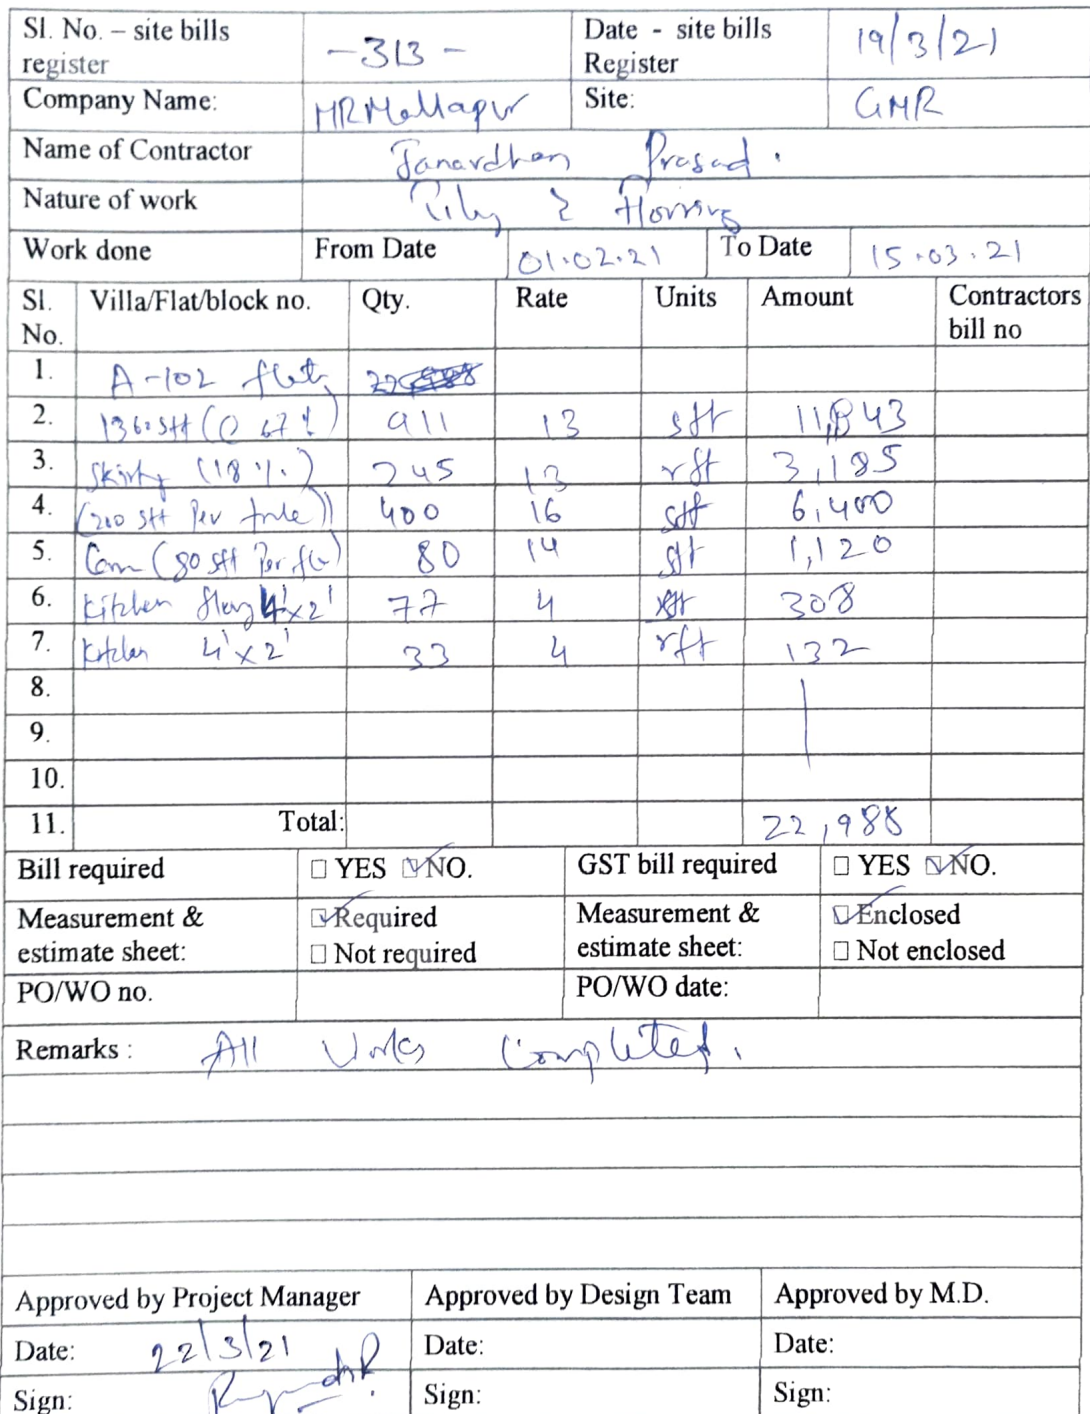 Sl. No. – site bills register -313- Date - site bills Register 19/3/21
Company Name: MRMallapur Site: GMR
Name of Contractor Janardhan Prasad.
Nature of work Tiling & Flooring
Work done From Date 01.02.21 To Date 15.03.21
Sl. No. Villa/Flat/block no. Qty. Rate Units Amount Contractors bill no
1. A-102 flat
2. 1360 sft (@ 67%) 911 13 sft 11,843
3. Skirting (18%) 245 13 rft 3,185
4. (200 sft Per ) 400 16 sft 6,400
5. (80 sft Per ) 80 14 sft 1,120
6. Kitchen 4'x2' 77 4 308
7. Kitchen 4'x2' 33 4 rft 132
8.
9.
10.
11. Total: 22,988
Bill required □ YES ☑ NO. GST bill required □ YES ☑ NO.
Measurement & estimate sheet: ☑ Required □ Not required Measurement & estimate sheet: ☑ Enclosed □ Not enclosed
PO/WO no. PO/WO date:
Remarks : All Works Completed.
Approved by Project Manager Approved by Design Team Approved by M.D.
Date: 22/3/21 Date: Date:
Sign: Sign: Sign: